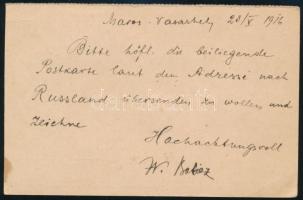 Maros-Vasarhely 28/V 1916
Bitte höfl. die beiliegende
Postkarte laut den Adresse nach
Russland übersenden zu wollen und
zeichne
Hochachtungsvoll
W.